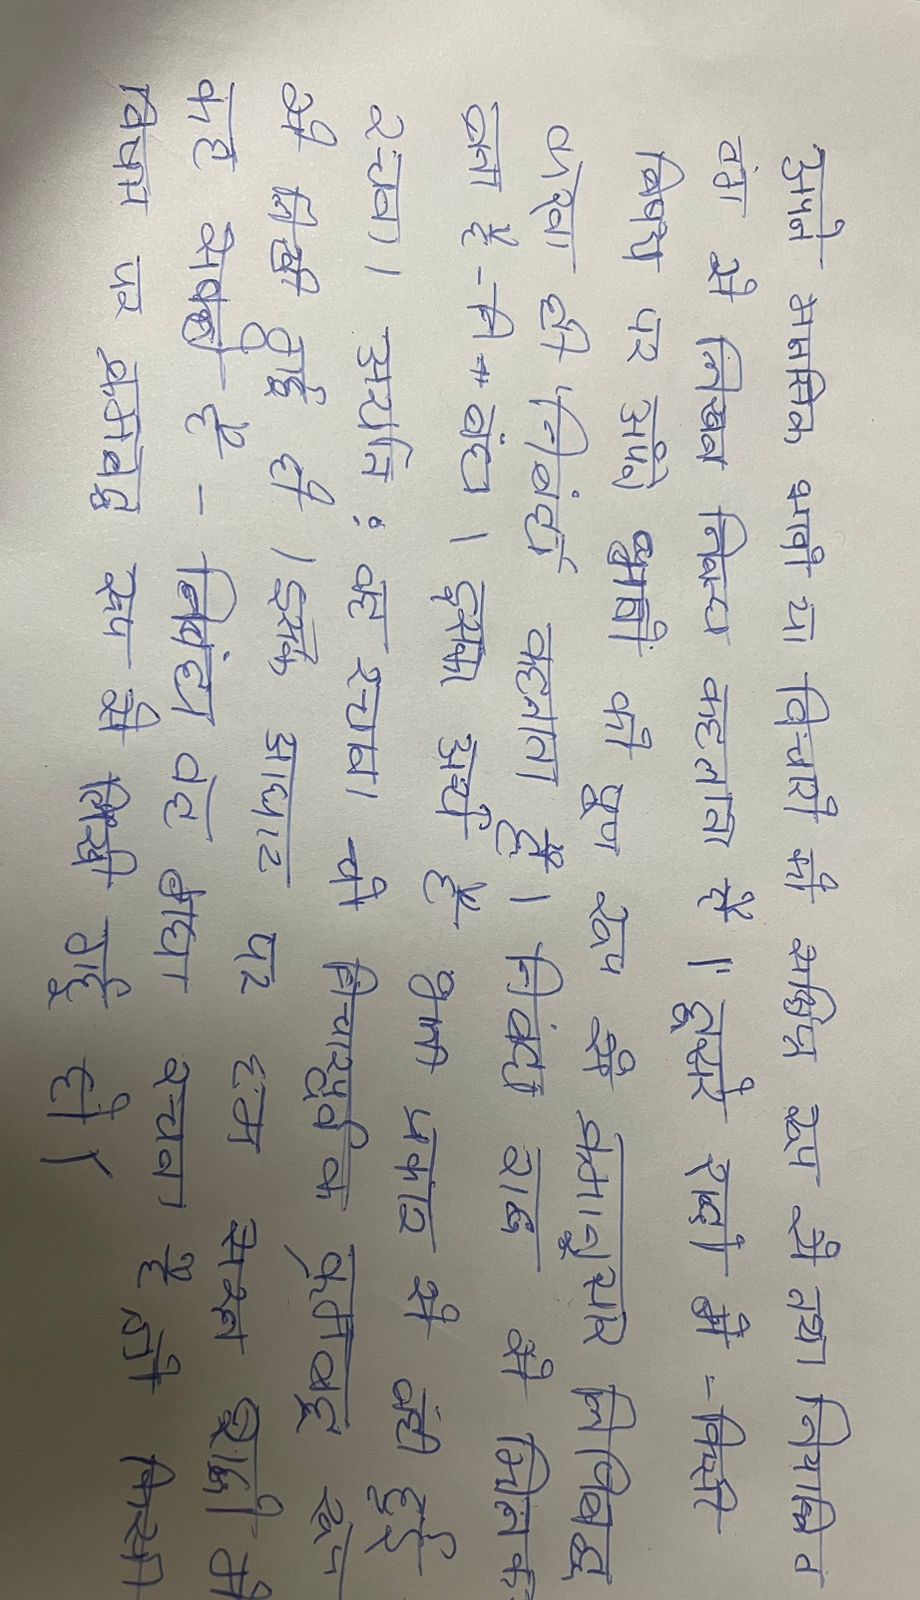 अपने मानसिक भावो या विचारो को सक्षिप्त रूप से तथा नियात्रित
ढंग से लिखन निबन्ध कहलाता है । दूसरे शब्दो मे - किसी
बिषय पर अपने भावों को पूण रूप से क्रमानुसार लिपिबद्ध
करना ही 'निबंध' कहलाता है । निबंध शब्द से मिलक
बना है - नि + बंध । इसका अर्थ है भली प्रकार से बंधी हुई
रचना । अर्थात : वह रचाना जो विचारपूर्वक क्रमबद्ध रूप
से लिखी गई हो । इसके आधार पर हम सरल शब्दो मे
कह सकते है - निबंध वह गघा रचना है जो किसी
विषय पर क्रमबद्ध रूप से लिखी गई हो ।